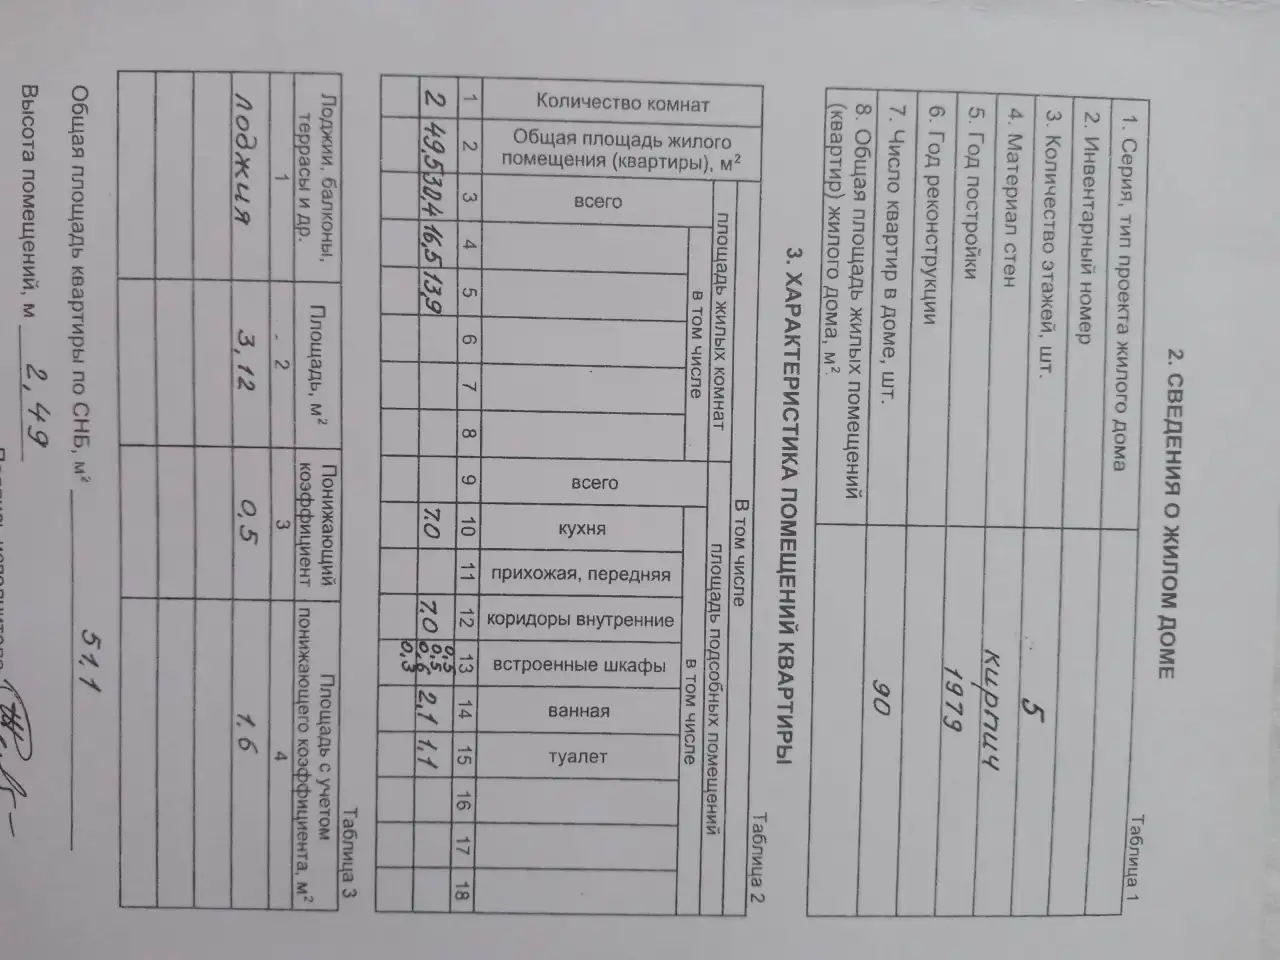 2. СВЕДЕНИЯ О ЖИЛОМ ДОМЕ
Таблица 1
1. Серия, тип проекта жилого дома
2. Инвентарный номер
3. Количество этажей, шт. 5
4. Материал стен кирпич
5. Год постройки 1979
6. Год реконструкции
7. Число квартир в доме, шт. 90
8. Общая площадь жилых помещений
(квартир) жилого дома, м²
3. ХАРАКТЕРИСТИКА ПОМЕЩЕНИЙ КВАРТИРЫ
Таблица 2
Количество комнат
Общая площадь жилого
помещения (квартиры), м²
В том числе
площадь жилых комнат
площадь подсобных помещений
всего
в том числе
всего
в том числе
кухня
прихожая, передняя
коридоры внутренние
встроенные шкафы
ванная
туалет
1 2 3 4 5 6 7 8 9 10 11 12 13 14 15 16 17 18
2 49,5 30,4 16,5 13,9 7.0 7.0 0,5 0,5 0,6 2,1 1,1
0,3
Таблица 3
Лоджии, балконы,
террасы и др.
Площадь, м²
Понижающий
коэффициент
Площадь с учетом
понижающего коэффициента, м²
1 2 3 4
лоджия 3,12 0,5 1.6
Общая площадь квартиры по СНБ, м² 51,1
Высота помещений, м 2,49